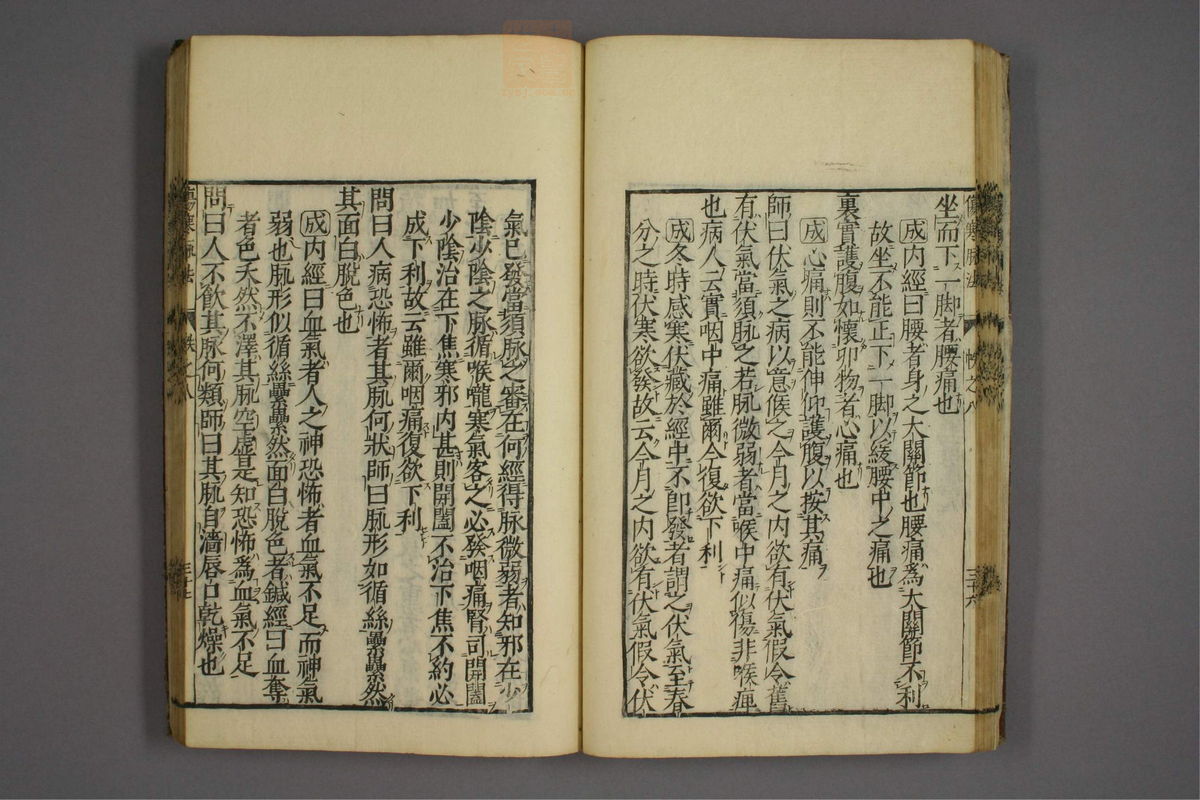 坐而下一脚者腰痛也
成内經曰腰者身之大關節也腰痛爲大關節不利
故坐不能正下一脚以緩腰中之痛也
裏實護腹如懷卵物者心痛也
成心痛則不能伸仰護腹以按其痛
師曰伏氣之病以意候之今月之内欲有伏氣假令舊
有伏氣當須脉之若脉微弱者當喉中痛似傷非喉痺
也病人云實咽中痛雖爾今復欲下利
成冬時感寒伏藏於經中不即發者謂之伏氣至春
分之時伏寒欲發故云今月之内欲有伏氣假令伏
三十六
氣已發當須脉之審在何經得脉微弱者知邪在少
陰少陰之脉循喉嚨寒氣客之必發咽痛腎司開闔
少陰治在下焦寒邪内甚則開闔不治下焦不約必
成下利故云雖爾咽痛復欲下利
問曰人病恐怖者其脉何狀師曰脉形如循絲纍纍然
其面白脫色也
成内經曰血氣者人之神恐怖者血氣不足而神氣
弱也脉形似循絲纍纍然面白脫色者鍼經曰血奪
者色夭然不澤其脉空虛是知恐怖爲血氣不足
問曰人不飲其脉何類師曰其脉自濇唇口乾燥也
三十七